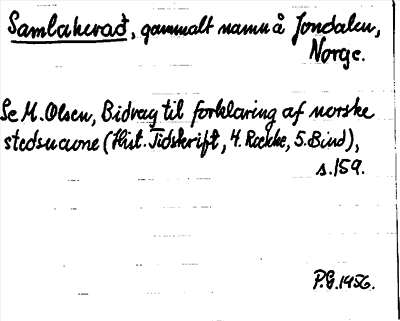 Samlakerað, gammalt namn å Jondalen,
Norge.
Se M. Olsen, Bidrag til forklaring af norske
stedsnavne (Hist. Tidskrift, 4. Række, 5. Bind),
s. 159.
P.G. 1956.